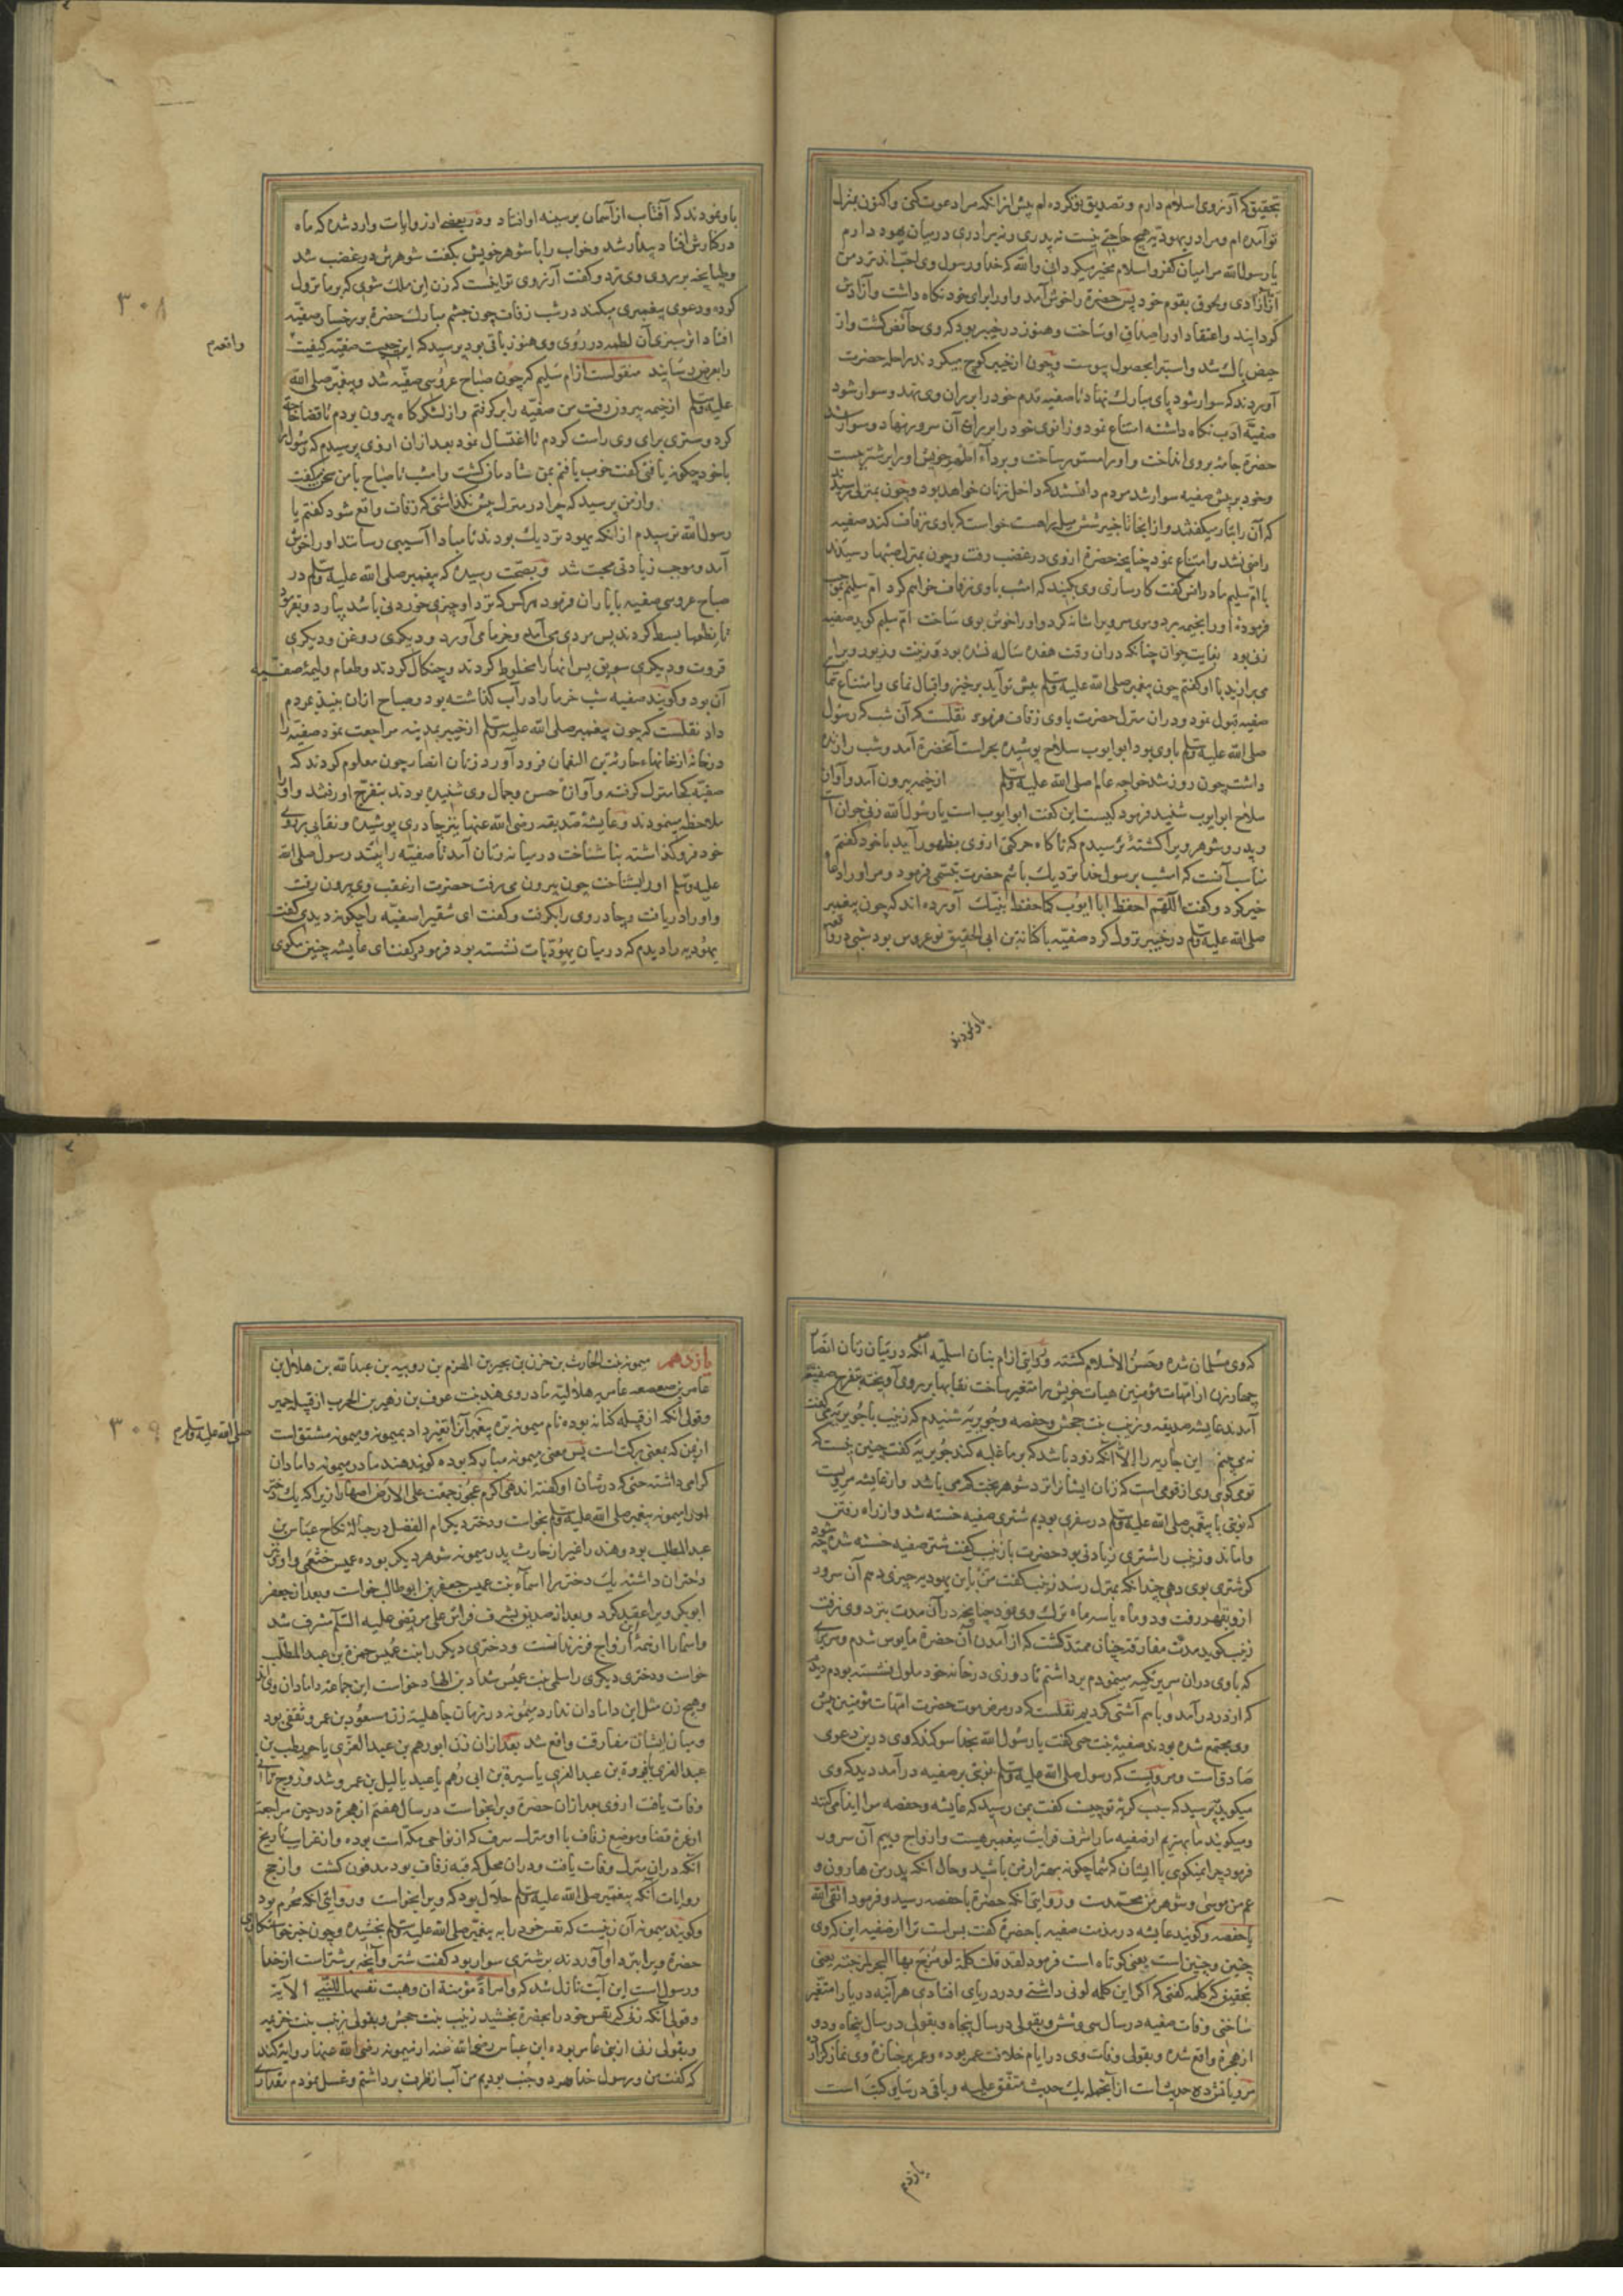 تحقیق که آرزوی اسلام دارم و تصدیق تو کرده ام پیش از انکه مرا دعوت کنی و اکنون بمنزل
تو آمده ام و مرا در یهودیه هیچ حاجتی نیست نه پدری و نه برادری در میان یهود دارم
یا رسول الله مرا میان کفر و اسلام مخیر میکردانی والله که خدا و رسول وی احب اند نزد من
از آزادی و لحوق بقوم خود پس حضرة را خوش آمد و او را برای خود نکاه داشت و آزادش
کردانید و اعتقاد او را صداق او ساخت و هنوز در خیبر بود که وی حائض کشت و از
حیض پاک شد و استبرا بحصول پیوست و چون از خیبر کوچ میکردند راحله حضرت
آوردند که سوار شود پای مبارک نهاد تا صفیه قدم خود را بران وی نهد و سوار شود
صفیّه ادب نکاه داشته امتناع نمود و زانوی خود را بر بران آن سرور نهاد و سوار شد
حضرة جامه بر وی انداخت و او را مستور ساخت و برداء اطهر خویش او را بر شتر بست
و خود بر پیش صفیه سوار شد مردم دانستند که داخل زنان خواهد بود و چون بمنزلی رسید
که آن را تبار میکفتند و از انجا تا خیبر شش میل راهست خواست که باوی زفاف کند صفیه
راضی نشد و امتناع نمود چنانچه حضرة از وی در غضب رفت و چون بمنزل صهبا رسیدند
با ام سلیم مادر انس کفت کار سازی وی بکنید که امشب باوی زفاف خواهم کرد ام سلیم بموجب
فرموده او را بخیمه برد و موی سر ویرا شانه کرد و او را خوش بوی ساخت ام سلیم کوید صفیه
زنی بود بغایت جوان چنانکه دران وقت هفده ساله نشده بود و زینت و زیور ویرا
می برازید با او کفتم چون پیغمبر صلی الله علیه وسلم پیش تو آید برخیز و اقبال نمای و امتناع منما
صفیه قبول نمود و دران منزل حضرت باوی زفاف فرمود نقلست که آن شب که رسول
صلی الله علیه وسلم باوی بود ابو ایوب سلاح پوشیده بحراست آنحضرة آمد و شب را زنده
داشت چون روز شد خواجه عالم صلی الله علیه وسلم از خیمه بیرون آمد و آواز
سلاح ابو ایوب شنید فرمود کیست این کفت ابو ایوب است یا رسول الله زنی جوان است
و پدر و شوهر ویرا کشته ترسیدم که ناکاه حرکتی از وی بظهور آید با خود کفتم
مناسب آنست که امشب برسول خدا نزدیک باشم حضرت تبسمی فرمود و مرا و را دعا
خیر کرد و کفت اللّهم احفظ ابا ایوب کما حفظ نبیک آورده اند که چون پیغمبر
صلی الله علیه وسلم در خیبر نزول کرد صفیّه با کنانة بن ابی الحقیق نو عروس بود شبی در واقعه
باو نمودند
باو نمودند که آفتاب از آسمان بر سینه او افتاد و در بعضی از روایات وارد شده که ماه
در کنارش افتاد بیدار شد و خواب را با شوهر خویش بکفت شوهرش در غضب شد
و طپانچه بر روی وی زد و کفت آرزوی تو اینست که زن این ملک شوی که بر ما نزول
کرده و دعوی پیغمبری میکند در شب زفاف چون چشم مبارک حضرة بر رخسار صفیّه
افتاد اثر سبزی آن لطمه در روی وی هنوز باقی بود پرسید که این چیست صفیّه کیفیت
واقعه م
را بعرض رسانید منقولست از ام سلیم که چون صباح عروسی صفیّه شد و پیغمبر صلی الله
علیه وسلم از خیمه بیرون رفت من صفیّه را برکرفتم و از لشکرکاه بیرون بردم تا قضا حاجت
کرد و ستری برای وی راست کردم تا اغتسال نمود بعد از ان از وی پرسیدم که رسول را
با خود چکونه یافتی کفت خوب یافتم بمن شادمان کشت و امشب تا صباح با من سخن میکفت
و از من پرسید که چرا در منزل پیش نکذاشتی که زفاف واقع شود کفتم یا
رسول الله ترسیدم از انکه یهود نزدیک بودند مبادا آسیبی رسانند او را خوش
آمد و موجب زیادتی محبت شد و بصحت رسیده که پیغمبر صلی الله علیه وسلم در
صباح عروسی صفیه با یاران فرمود هرکس که نزد او چیزی خوردنی باشد بیارد و بفرمود
تا نطعها بسط کردند پس مردی می آمد و خرما می آورد و دیکری روغن و دیکری
قروت و دیکری سویق پس انها را مخلوط کردند و چنکال کردند و طعام ولیمۀ صفیّه
آن بود و کویند صفیه شب خرما را در آب کذاشته بود و صباح ازان نبیذ بمردم
داد نقلست که چون پیغمبر صلی الله علیه وسلم از خیبر بمدینه مراجعت نمود صفیّه را
در خانۀ از خانهاء حارثة بن النعمان فرود آورد زنان انصار چون معلوم کردند که
صفیّه کجا منزل کرفته و آوازۀ حسن و جمال وی شنیده بودند بتفرج او رفتند و او را
ملاحظه مینمودند و عایشۀ صدیقه رضی الله عنها نیز چادری پوشیده و نقابی بر روی
خود فروکذاشته ناشناخت در میانه زنان آمد تا صفیّه را بیند رسول صلی الله
علیه وسلم او را بشناخت چون بیرون می رفت حضرت از عقب وی بیرون رفت
و او را دریافت و چادر وی را بکرفت و کفت ای شقیرا صفیّه را چکونه دیدی کفت
یهودیه را دیدم که در میان یهودیّات نشسته بود فرمود کفت ای عایشه چنین مکوی
۳۰۸
که وی مسلمان شده و حَسُن الاسلام کشته و روایتی از ام سنان اسلمیه آنکه در میان زنان انصار
چهار زن از امهات مؤمنین هیات خویش را متغیر ساخت نقابها بر روی آویخته بتفرج صفیّه
آمدند عایشه صدیقه و زینب بنت جحش و حفصه و جویریه شنیدم که زینب با جویریه می کفت
نمی بینم این جاریه را الا آنکه زود باشد که بر ما غلبه کند جویریه کفت چنین نیست که
تو می کوی وی از قومی است که زنان ایشان را نزد شوهر بخت کم می باشد و از عایشه مرویست
که نوبتی با پیغمبر صلی الله علیه وسلم در سفری بودیم شتری صفیه خسته شد و از راه رفتن
واماند و زینب را شتری زیادتی بود حضرت با زینب کفت شتر صفیه خسته شده چه شود
کر شتری بوی دهی چندانکه بمنزل رسد زینب کفت من باین یهودیه چیزی دهم آن سرور
ازو بقهر رفت و دو ماه یا سه ماه ترک وی نمود چنانچه در آن مدت بنزد وی نرفت
زینب کوید مدت مفارقت چنان ممتد کشت که از آمدن آن حضرة مایوس شدم و سریری
که باوی دران سریر تکیه مینمودم برداشتم تا روزی در خانه خود ملول نشسته بودم دیدم
که از در درآمد و باهم آشتی کردیم نقلست که در مرض موت حضرت امهات مؤمنین پیش
وی مجتمع شده بودند صفیه بنت حی کفت یا رسول الله بخدا سوکند که وی درین دعوی
صادق است و مرویست که رسول صلی الله علیه وسلم نوبتی بر صفیه درآمد دید که وی
میکرید پرسید که سبب کریۀ تو چیست کفت بمن رسید که عایشه و حفصه مرا ایذا میکنند
و میکویند ما بهتریم از صفیه ما را شرف قرابت پیغمبر هست و ازواج وییم آن سرور
فرمود چرا نمیکوی با ایشان که شما چکونه بهتر از من باشید و حال آنکه پدر من هارون و
عم من موسی و شوهر من محمدست و روایتی آنکه حضرة با حفصه رسید و فرمود اتقی الله
یا حفصه و کویند عایشه در مذمت صفیه با حضرة کفت بس است ترا از صفیه این که وی
چنین و چنین است یعنی کوتاه است فرمود لقد قلت کلمة لو مزج بها البحر لمزجته یعنی
تحقیق که کلمه کفتی که اکر این کلمه لونی داشتی و در دریای افتادی هر آینه دریا را متغیّر
ساختی وفات صفیه در سال سی و شش و بقولی در سال پنجاه و بقولی در سال پنجاه و دو
از هجرة واقع شده و بقولی وفات وی در ایام خلافت عمر بوده و عمر بر جنازۀ وی نماز کزارد
مرویاتش ده حدیث است از آنجمله یک حدیث متفق علیه و باقی در سایر کتب است
یازدهم
یازدهم میمونه بنت الحارث بن حزن بن بجیر بن الهزم بن رویبه بن عبدالله بن هلال بن
عامر بن صعصعه عامریه هلالیّه مادر وی هند بنت عوف بن زهیر بن الحرب از قبیله حمیر
و قولی آنکه از قبیله کنانه بوده نام میمونه بره پیغمبر آنرا تغیر داد بمیمونه و میمونه مشتق است
صلی الله علیه وسلم م
از یمن که بمعنی برکت است پس معنی میمونه مبارکه بوده کویند هند مادر میمونه دامادان
کرامی داشته حتی که در شان او کفته اند هی اکرم عجوز جعت علی الارض اصهارا زیرا که یک دختر
او را میمونه پیغمبر صلی الله علیه وسلم بخواست و دختر دیکر ام الفضل در حبالۀ نکاح عباس بن
عبدالمطلب بود و هند را غیر از حارث پدر میمونه شوهر دیکر بوده عمیس خثعمی و از وی نیز
دختران داشته یک دختر را اسماء بنت عمیس جعفر بن ابوطالب خواست و بعد از جعفر
ابوبکر ویرا عقد کرد و بعد از صدیق بشرف فراش علی مرتضی علیه السلام مشرف شد
و اسما را از همۀ آن ازواج فرزندانست و دختری دیکر را بنت عمیس حمزة بن عبدالمطلب
خواست و دختری دیکری را سلمی بنت عمیس شداد بن الهاد خواست این جماعة دامادان وی اند
و هیچ زن مثل این دامادان ندارد میمونه در زمان جاهلیة زن مسعود بن عمرو ثقفی بود
و میان ایشان مفارقت واقع شد بعد ازان زن ابو رهم بن عبدالعزی یا حویطب بن
عبدالعزی یا فروة بن عبدالعزی یا سبرة بن ابی رهم یا عبد یالیل بن عمرو شد و زوج ثانی
وفات یافت از وی بعد ازان حضرة ویرا بخواست در سال هفتم از هجرة در حین مراجعت
از عمرۀ قضا و موضع زفاف با او منزل سرف که از نواحی مکه است بوده و از غرایب تاریخ
آنکه دران منزل وفات یافت و دران محل که قبه زفاف بود مدفون کشت و ارجح
روایات آنکه پیغمبر صلی الله علیه وسلم حلال بود که ویرا بخواست و روایتی آنکه محرم بود
و کویند میمونه آن زنیست که نفس خود را به پیغمبر صلی الله علیه وسلم بخشیده و چون خبر خواستکاری
حضرة ویرا نزد او آوردند بر شتری سوار بود کفت شتر و آنچه بر شتر است از خدا
و رسول است این آیت نازل شد که وامرأة مؤمنة ان وهبت نفسها للنبی الآیه
و قولی آنکه زنی که نفس خود را بحضرة بخشید زینب بنت جحش و بقولی زینب بنت خزیمه
و بقولی زنی از بنی عامر بوده ابن عباس رضی الله عنه از میمونه رضی الله عنها روایت کند
که کفت من و رسول خدا هر دو جنب بودیم من آب از ظرف برداشتم و غسل نمودم مقداری
۳۰۹